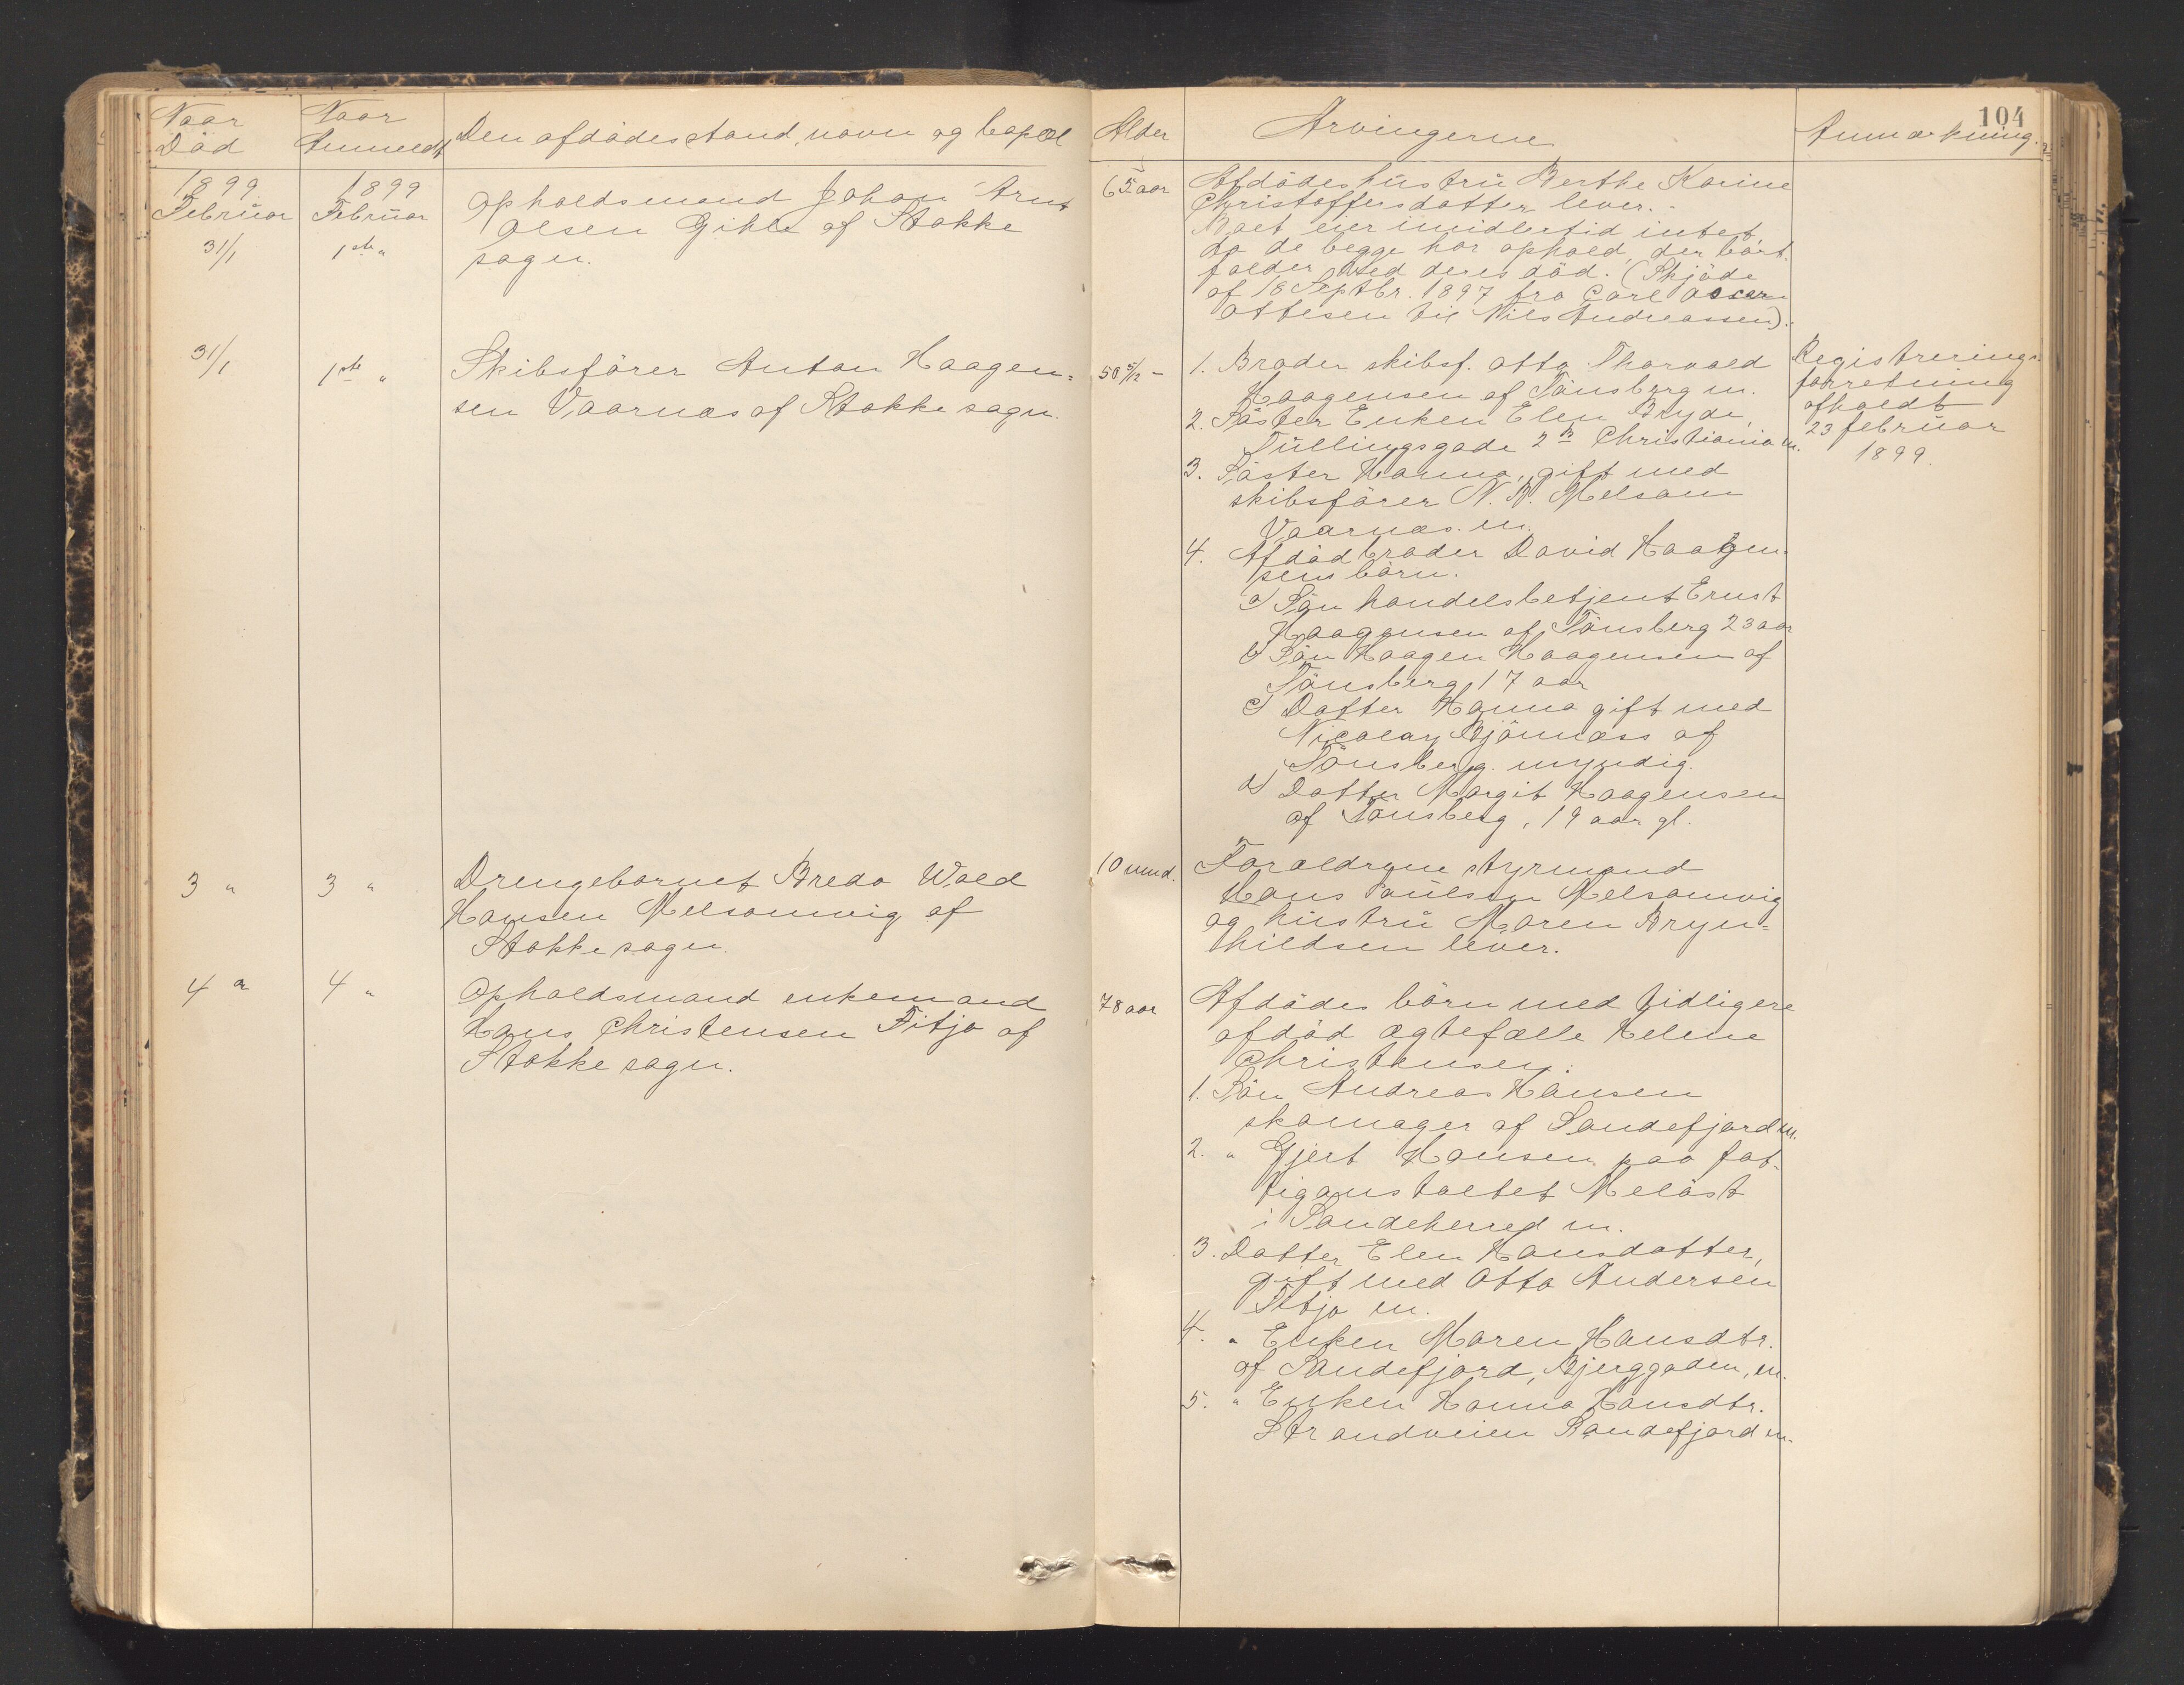 104
Naar Död
Naar Anmeldt
Den afdödes stand, navn og bopæl
Alder
Arvingerne
Anmærkning.
1899 Februar
1899 Februar
31/1
1ste "
Opholdsmand Johan Arnt
Olsen Gihle af Stokke
sogn.
65 aar
Afdödes hustru Berthe Karine
Christoffersdatter lever. -
Boet eier imidlertid intet
da de begge har ophold, der bort-
falder ved deres död. (Skjöde
af 18 Septbr. 1897 fra Carl Oscar
Ottesen til Nils Andreassen).
31/1
1ste "
Skibsförer Anton Haagen-
sen Vaarnæs af Stokke sogn.
50 5/12 -
1. Broder skibsf. Otto Thorvald
Haagensen af Tönsberg m.
2. Söster Enken Elen Bryde,
Tullingsgade 2 B Christiania m.
3. Söster Hanna, gift med
skibsförer N. B. Melsom
Vaarnæs. m.
4. Afdöd broder David Haagen-
sens börn.
a) Sön handelsbetjent Ernst
Haagensen af Tönsberg 23 aar
b) Sön Haagen Haagensen af
Tönsberg, 17 aar
c) Datter Hanna gift med
Nicolay Björnness af
Tönsberg. myndig.
d) Datter Margit Haagensen
af Tönsberg, 19 aar gl.
Registrerings-
forretning
afholdt
23 februar
1899.
3 "
3 "
Drengebarnet Bredo Wold
Hansen Melsomvig af
Stokke sogn.
10 mnd.
Forældrene styrmand
Hans Paulsen Melsomvig
og hustru Maren Bryn-
hildsen lever.
4 "
4 "
Opholdsmand enkemand
Hans Christensen Fitjo af
Stokke sogn.
78 aar
Afdödes börn med tidligere
afdöd ægtefælle Helene
Christensen:
1. Sön Andreas Hansen
skomager af Sandefjord m.
2. " Gjert Hansen paa fat-
tiganstaltet Meløst
i Sandeherred m.
3. Datter Elen Hansdatter,
gift med Otto Andersen
Fitjo m.
4. " Enken Maren Hansdtr.
af Sandefjord, Bjerggaden, m.
5. " Enken Hanna Hansdtr.
Strandveien Sandefjord m.